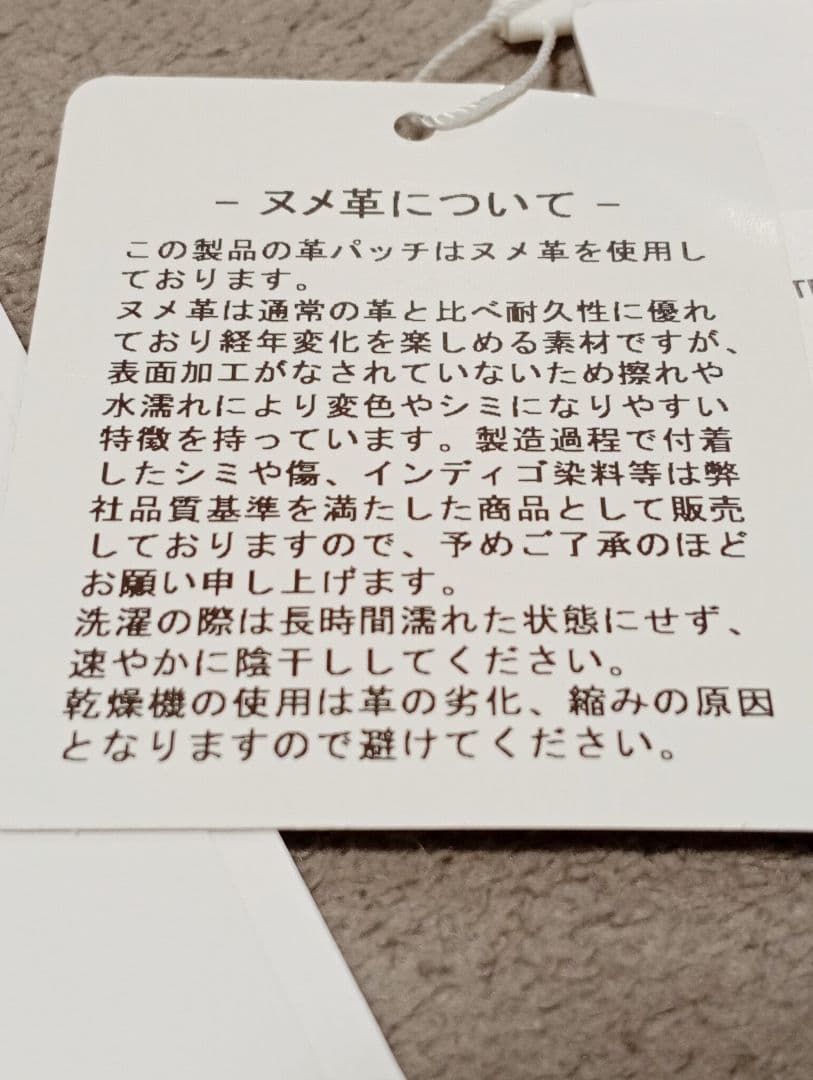 - ヌメ革について -
この製品の革パッチはヌメ革を使用し
ております。
ヌメ革は通常の革と比べ耐久性に優れ
ており経年変化を楽しめる素材ですが、
表面加工がなされていないため擦れや
水濡れにより変色やシミになりやすい
特徴を持っています。製造過程で付着
したシミや傷、インディゴ染料等は弊
社品質基準を満たした商品として販売
しておりますので、予めご了承のほど
お願い申し上げます。
洗濯の際は長時間濡れた状態にせず、
速やかに陰干ししてください。
乾燥機の使用は革の劣化、縮みの原因
となりますので避けてください。